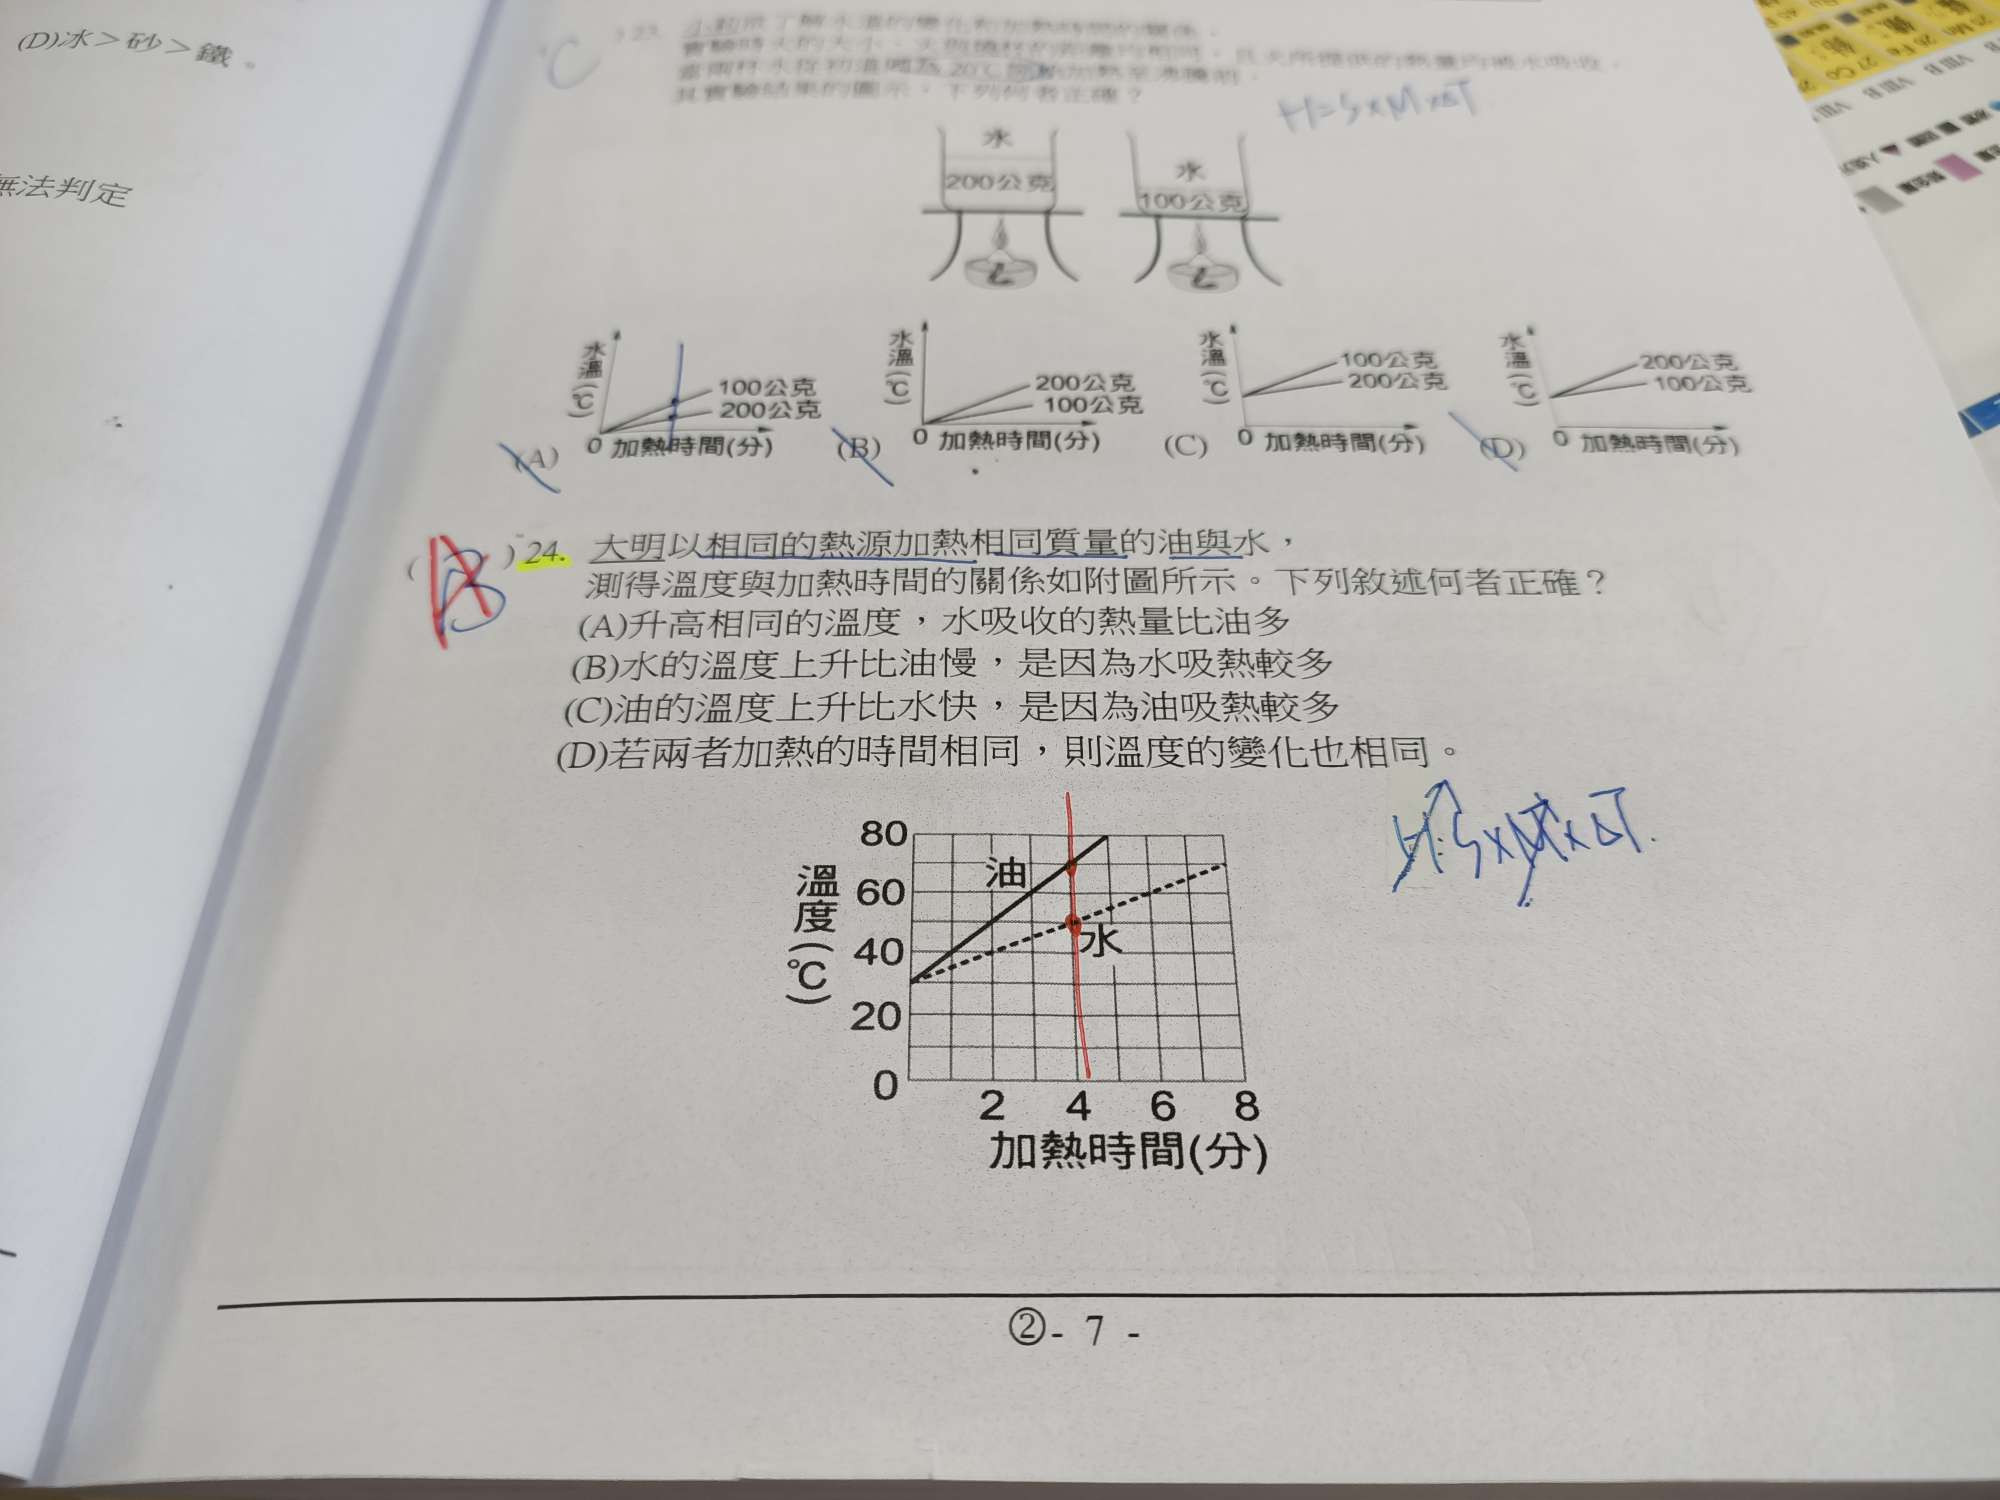 (D)冰＞砂＞鐵。
無法判定
C
23. 小莉欲了解水溫的變化和加熱時間的關係，
其實驗結果的圖示，下列何者正確？
H=S×M×ΔT
水
200公克
水
100公克
水溫(℃)
100公克
200公克
0 加熱時間(分)
(A)
水溫(℃)
200公克
100公克
0 加熱時間(分)
(B)
水溫(℃)
100公克
200公克
0 加熱時間(分)
(C)
水溫(℃)
200公克
100公克
0 加熱時間(分)
(D)
( B )24. 大明以相同的熱源加熱相同質量的油與水，
測得溫度與加熱時間的關係如附圖所示。下列敘述何者正確？
(A)升高相同的溫度，水吸收的熱量比油多
(B)水的溫度上升比油慢，是因為水吸熱較多
(C)油的溫度上升比水快，是因為油吸熱較多
(D)若兩者加熱的時間相同，則溫度的變化也相同。
H=S×M×ΔT
溫度(℃)
80
60
40
20
0
油
水
2 4 6 8
加熱時間(分)
②- 7 -